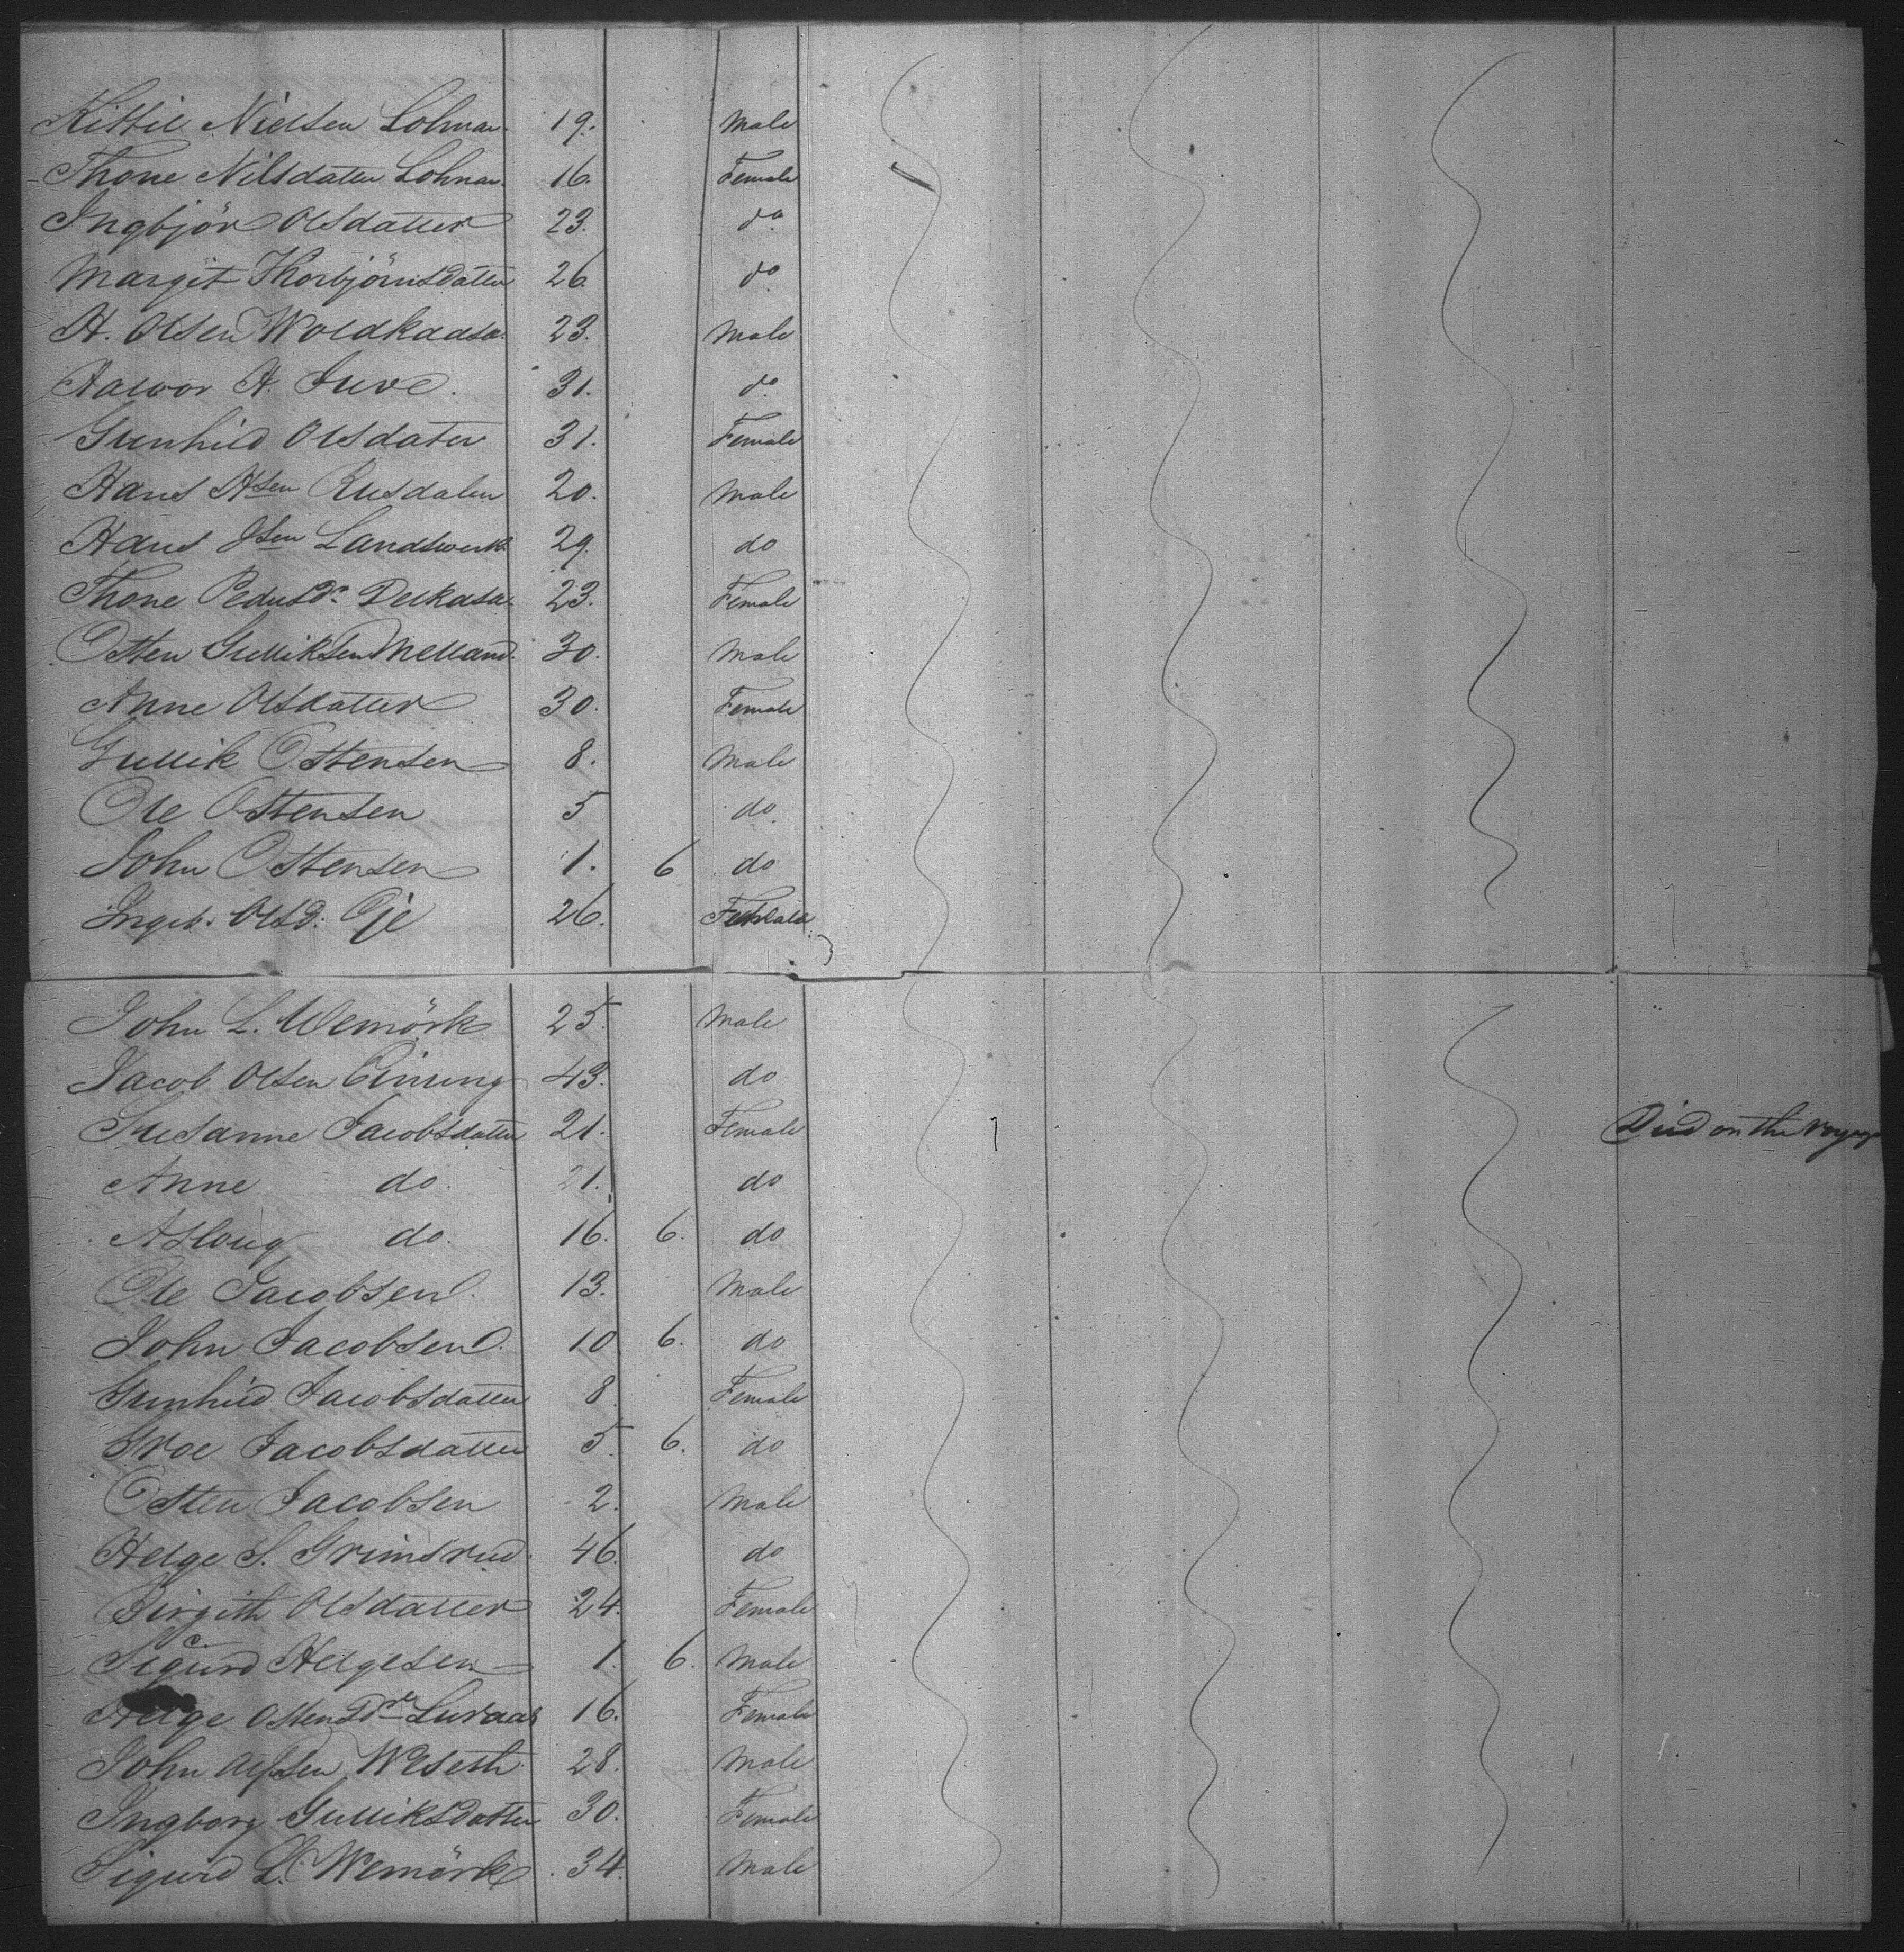 Kittil Nielsen Lohnar. 19. Male
Thone Nilsdatter Lohnar. 16. Female
Ingbjör Olsdatter 23. do.
Margit Thorbjörnsdatter 26 do.
H. Olsen Woldkaasa. 23. Male
Halvor H. Juve. 31. do.
Gunhild Olsdater 31. Female
Hans Hsen Rusdalen 20. Male
Hans Jsen Landswerk 29. do
Thone Pedersdr 23. Female
Östen Gulliksen Melland. 30. Male
Anne Olsdatter 30. Female
Gullik Östensen 8. Male
Ole Östensen 5 do.
John Östensen 1. 6 do
Ingeb. Olsd. Öje 26. Female
John L. Wemörk 25. Male
Jacob Olsen Einung 43. do
Susanne Jacobsdatter 21. Female Died on the voyage
Anne do. 21. do
Asloug do. 16. 6. do
Ole Jacobsen. 13. Male
John Jacobsen. 10 6. do
Gunhild Jacobsdatter 8 Female
Groe Jacobsdatter 5. 6. do
Östen Jacobsen 2. Male
Helge S. Grimsrud. 46. do
Birgith Olsdatter 24. Female
Sigurd Helgesen 1. 6. Male
Helge Ostensdr Luraas 16. Female
John Weseth. 28. Male
Ingborg Gulliksdatter 30. Female
Sigurd L. Wemörk 34. Male